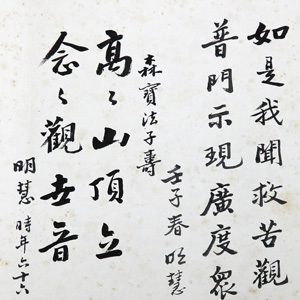 如是我聞救苦觀
普門示現廣度眾
壬子春明慧
森寶法子壽
高〻山頂立
念〻觀世音
明慧時年六十六